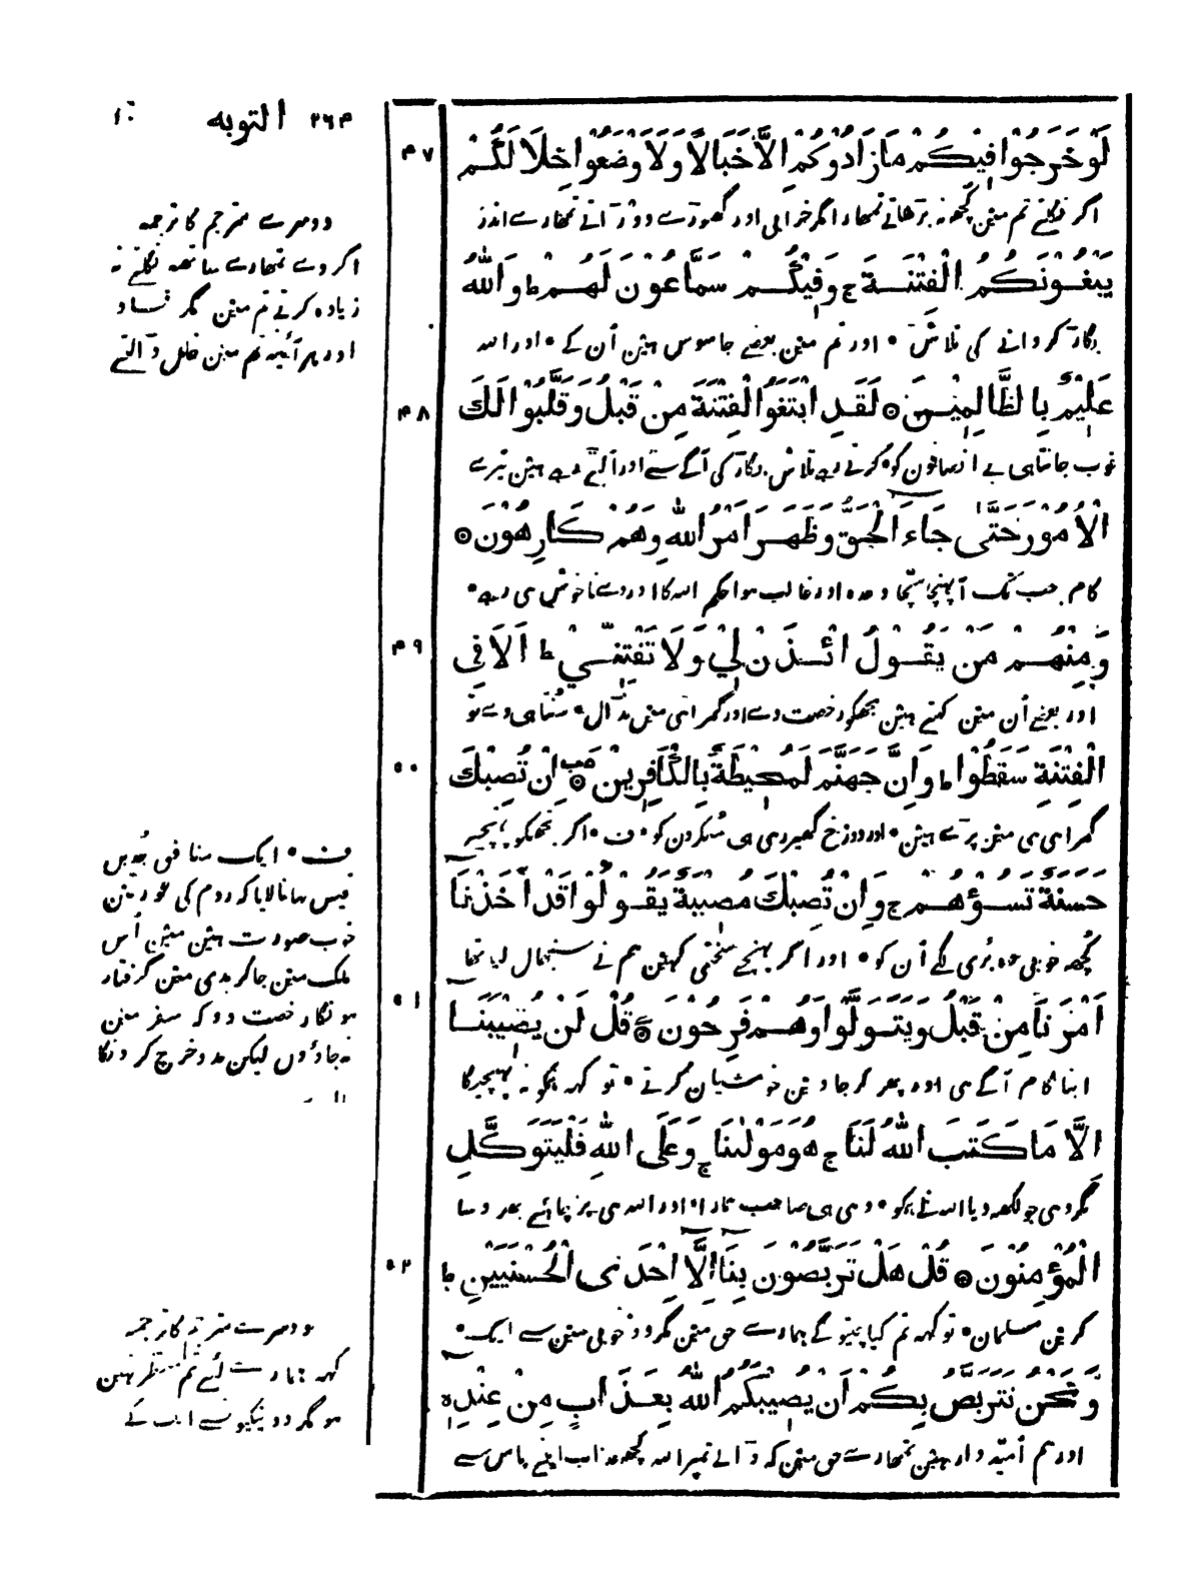 التوبه ۲۶۴
۴۷
لَوْ خَرَجُوْا فِيْكُمْ مَا زَادُوْكُمْ اِلَّا خَبَالًا وَلَا وْضَعُوْا خِلَالَكُمْ
اگر نکلتے تم مین کچھ نہ بڑھاتے تمھارا مگر خرابی اور گھوڑے دوڑاتے تمھارے اندر
يَبْغُوْنَكُمُ الْفِتْنَةَ ج وَفِيْكُمْ سَمَّاعُوْنَ لَهُمْ ط وَاللهُ
بگاڑ کروانے کی تلاش • اور تم مین بعضے جاسوس ہین اُن کے • اور الله
عَلِيْمٌ بِالظَّالِمِيْنَ ۞ لَقَدِ ابْتَغَوُا الْفِتْنَةَ مِنْ قَبْلُ وَقَلَّبُوْا لَكَ
۴۸
خوب جانتا ہی بے انصافون کو • کرتے رہے تلاش بگاڑ کی آگے سے اور اُلٹتے رہے ہین تیرے
الْاُمُوْرَ حَتّٰى جَاءَ الْحَقُّ وَظَهَرَ اَمْرُ اللهِ وَهُمْ كَارِهُوْنَ ۞
کام جب تک آ پہنچا سچا وعدہ اور غالب ہوا حکم الله کا اور وے ناخوش ہی رہے •
۴۹
وَمِنْهُمْ مَنْ يَقُوْلُ ائْذَنْ لِيْ وَلَا تَفْتِنِّيْ ط اَلَا فِي
اور بعضے اُن مین کہتے ہین مجھکو رخصت دے اور گمراہی مین نہ ڈال • سنتا ہی وے تو
۵۰
الْفِتْنَةِ سَقَطُوْا ط وَاِنَّ جَهَنَّمَ لَمُحِيْطَةٌ بِالْكَافِرِيْنَ ۞ اِنْ تُصِبْكَ
گمراہی ہی مین پڑے ہین • اور دوزخ گھیر رہی ہی منکرون کو • ف • اگر تجھکو پہنچے
حَسَنَةٌ تَسُؤْهُمْ ج وَاِنْ تُصِبْكَ مُصِيْبَةٌ يَقُوْلُوْا قَدْ اَخَذْنَا
کچھ خوبی وہ بُری لگے اُن کو • اور اگر پہنچے سختی کہین ہم نے سنبھال لیا تھا
۵۱
اَمْرَنَا مِنْ قَبْلُ وَيَتَوَلَّوْا وَهُمْ فَرِحُوْنَ ۞ قُلْ لَنْ يُصِيْبَنَا
اپنا کام آگے ہی اور پھر کر جاوین خوشیان کرتے • تو کہہ ہمکو نہ پہنچیگا
اِلَّا مَا كَتَبَ اللهُ لَنَا ج هُوَ مَوْلٰنَا ج وَعَلَى اللهِ فَلْيَتَوَكَّلِ
مگر وہی جو لکھدیا الله نے ہمکو • وہی ہی صاحب ہمارا • اور الله ہی پر چاہئے بھروسا
۵۲
الْمُؤْمِنُوْنَ ۞ قُلْ هَلْ تَرَبَّصُوْنَ بِنَا اِلَّا اِحْدَى الْحُسْنَيَيْنِ ط
کرین مسلمان • تو کہہ تم کیا چیتوگے ہمارے حق مین مگر دو خوبی مین سے ایک •
وَنَحْنُ نَتَرَبَّصُ بِكُمْ اَنْ يُصِيْبَكُمُ اللهُ بِعَذَابٍ مِنْ عِنْدِهٖ
اور ہم اُمیدوار ہین تمھارے حق مین کہ ڈالے تم پر الله کچھ عذاب اپنے پاس سے
دوسرے مترجم کا ترجمہ
اگر وے تمھارے ساتھ نکلتے نہ
زیادہ کرتے تم مین مگر فساد
اور ہر آئینہ تم مین خلل ڈالتے
ف • ایک منافق جد بن
قیس بہانا لایا کہ روم کی عورتین
خوب صورت ہین مین اُس
ملک مین جاکر بدی مین گرفتار
ہونگا رخصت دو کہ سفر مین
نہ جاؤن لیکن مدد خرچ کر دونگا
دوسرے مترجم کا ترجمہ
کہہ ہمارے لئے تم منتظر نہین
ہو مگر دو نیکیون سے ایک کے